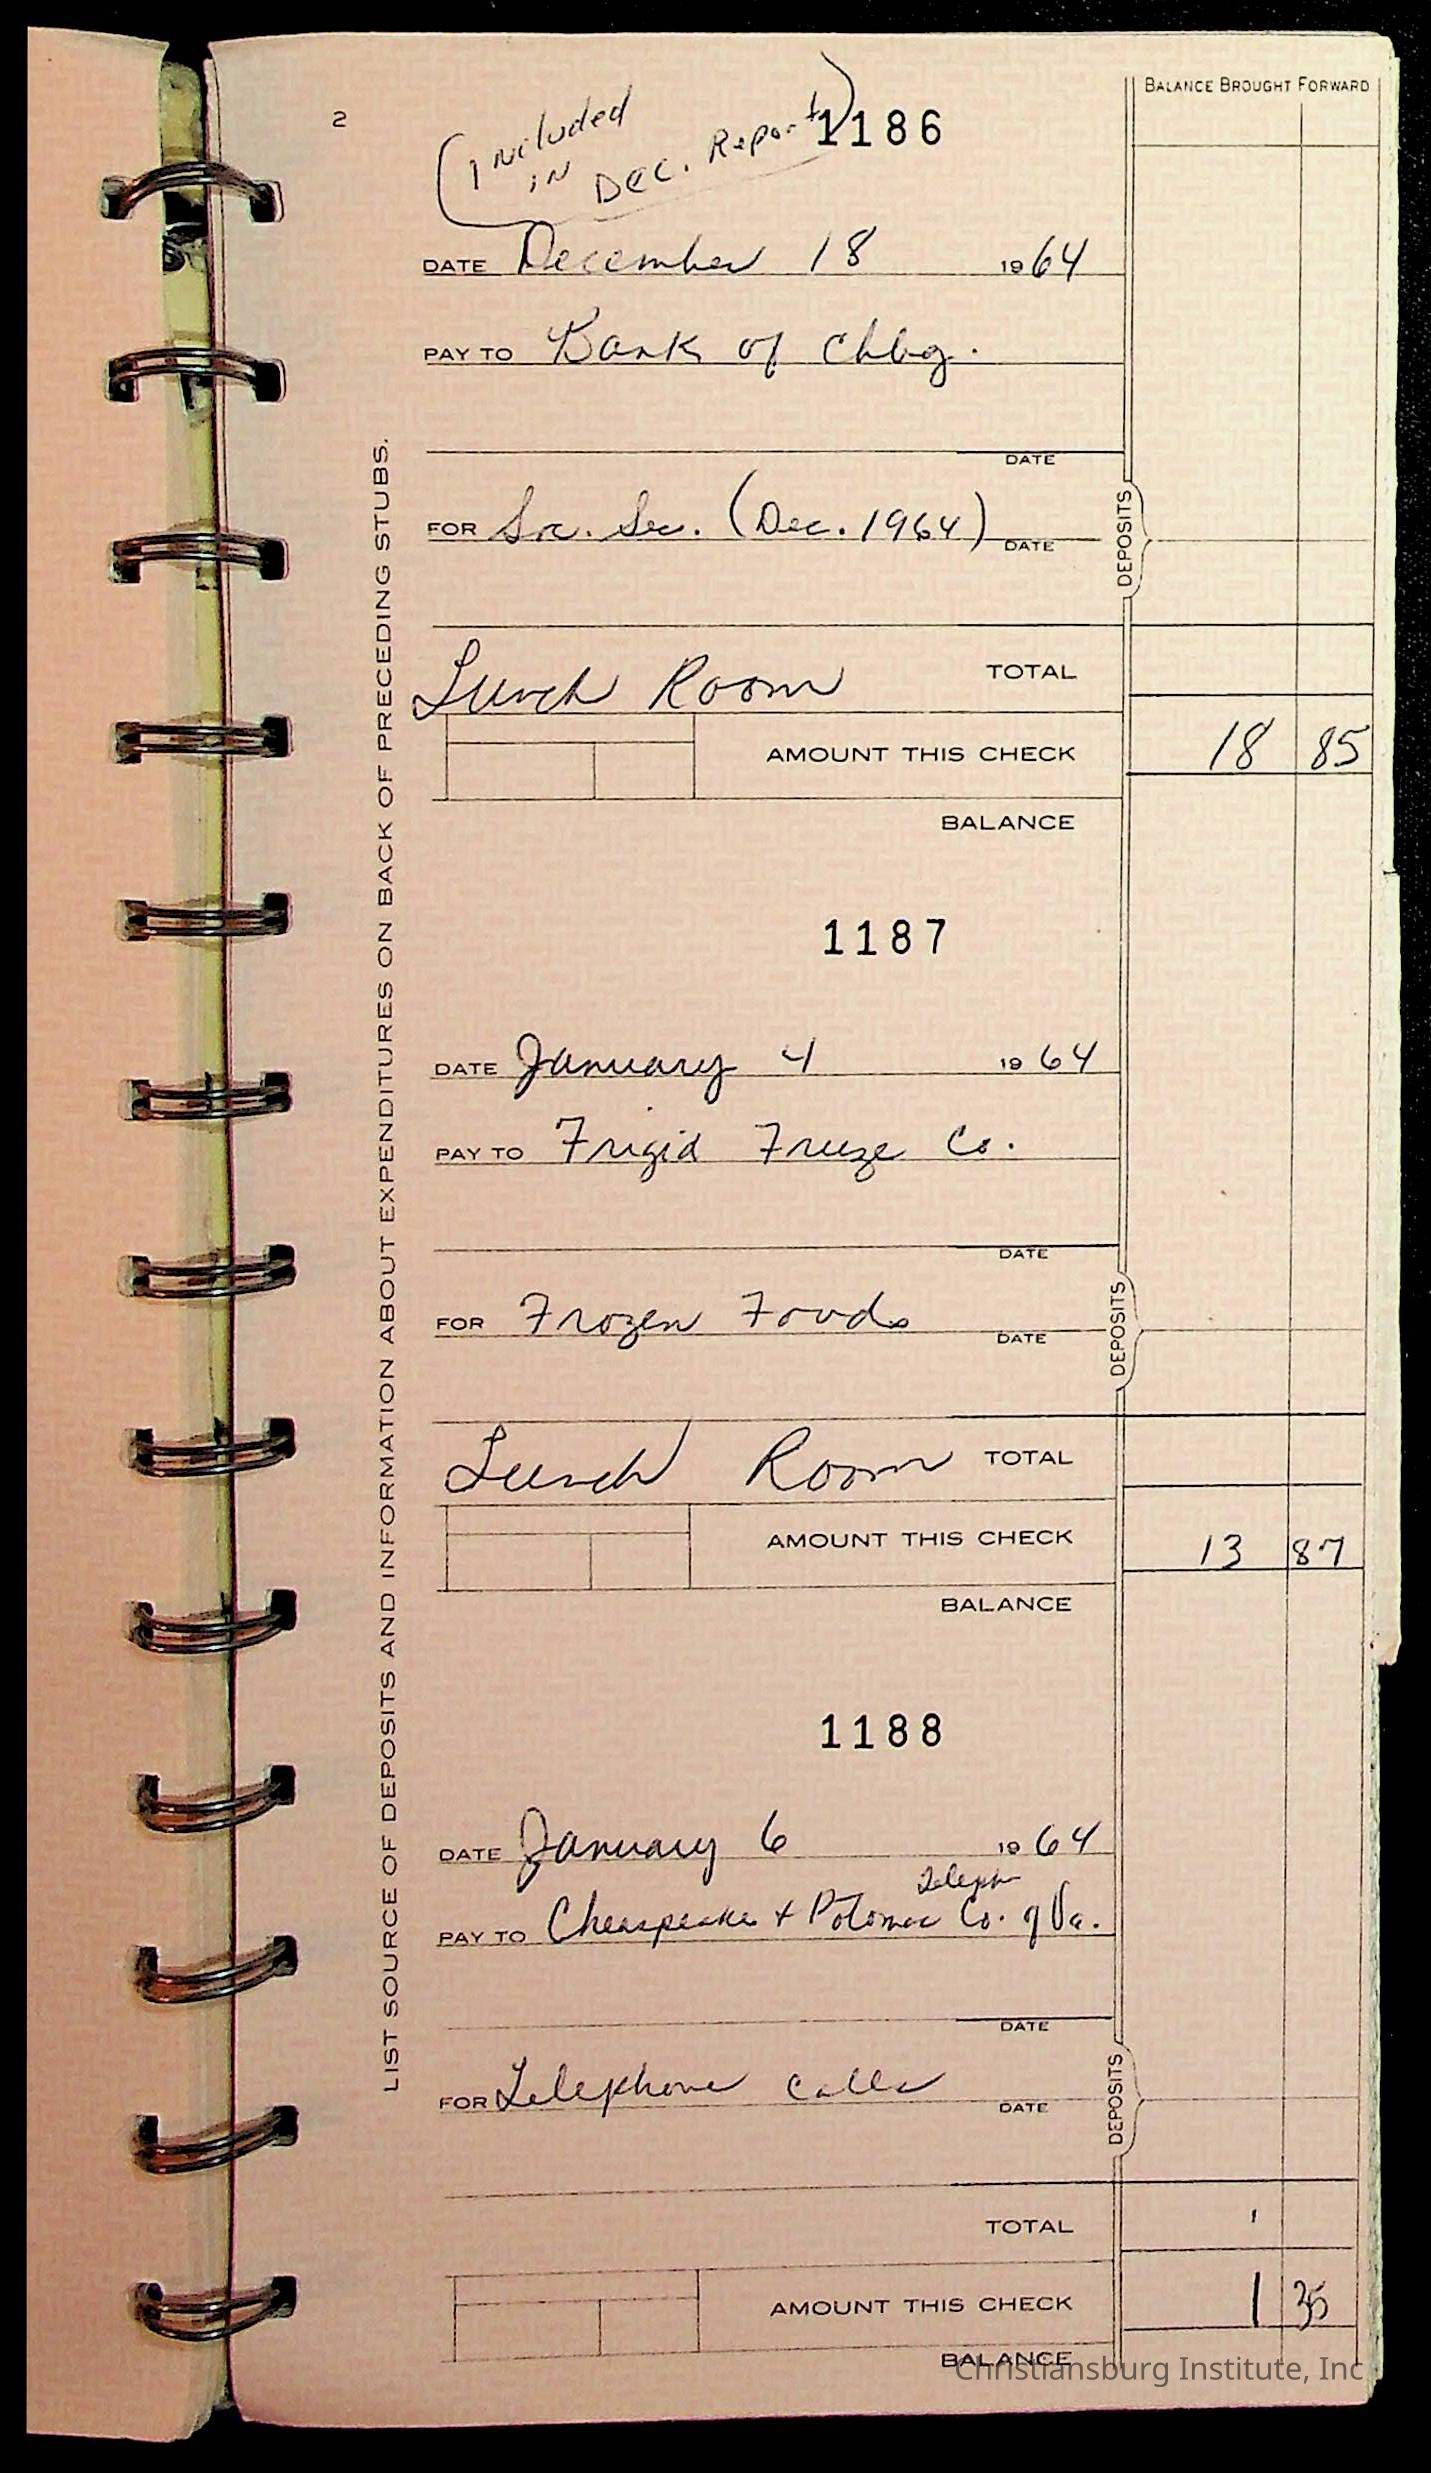 2
(Included
in Dec. Report)
1186
BALANCE BROUGHT FORWARD
DATE December 18 1964
PAY TO Bank of Chbg.
DATE
FOR Soc. Sec. (Dec. 1964) DATE
DEPOSITS
Lunch Room TOTAL
AMOUNT THIS CHECK 18 85
BALANCE
LIST SOURCE OF DEPOSITS AND INFORMATION ABOUT EXPENDITURES ON BACK OF PRECEDING STUBS.
1187
DATE January 4 1964
PAY TO Frigid Freeze Co.
DATE
FOR Frozen Foods DATE
DEPOSITS
Lunch Room TOTAL
AMOUNT THIS CHECK 13 87
BALANCE
1188
DATE January 6 1964
Teleph
PAY TO Cheaspeake + Potomac Co. of Va.
DATE
FOR Telephone Calls DATE
DEPOSITS
TOTAL
AMOUNT THIS CHECK 1 35
BALANCE
Christiansburg Institute, Inc